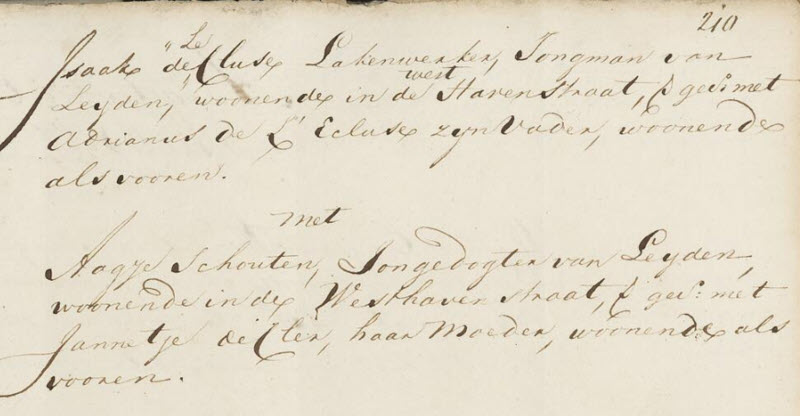 210
Le
Isaak de Cluse Lakenwerker, Jongman van
west
Leyden, woonende in de Havenstraat, geas: met
Adrianus de L' Ecluse zyn Vader, woonende
als vooren.
met
Aagje Schouten, Jongedogter van Leyden,
woonende in de Westhavenstraat, geas: met
Jannetje de haar Moeder, woonende als
vooren.